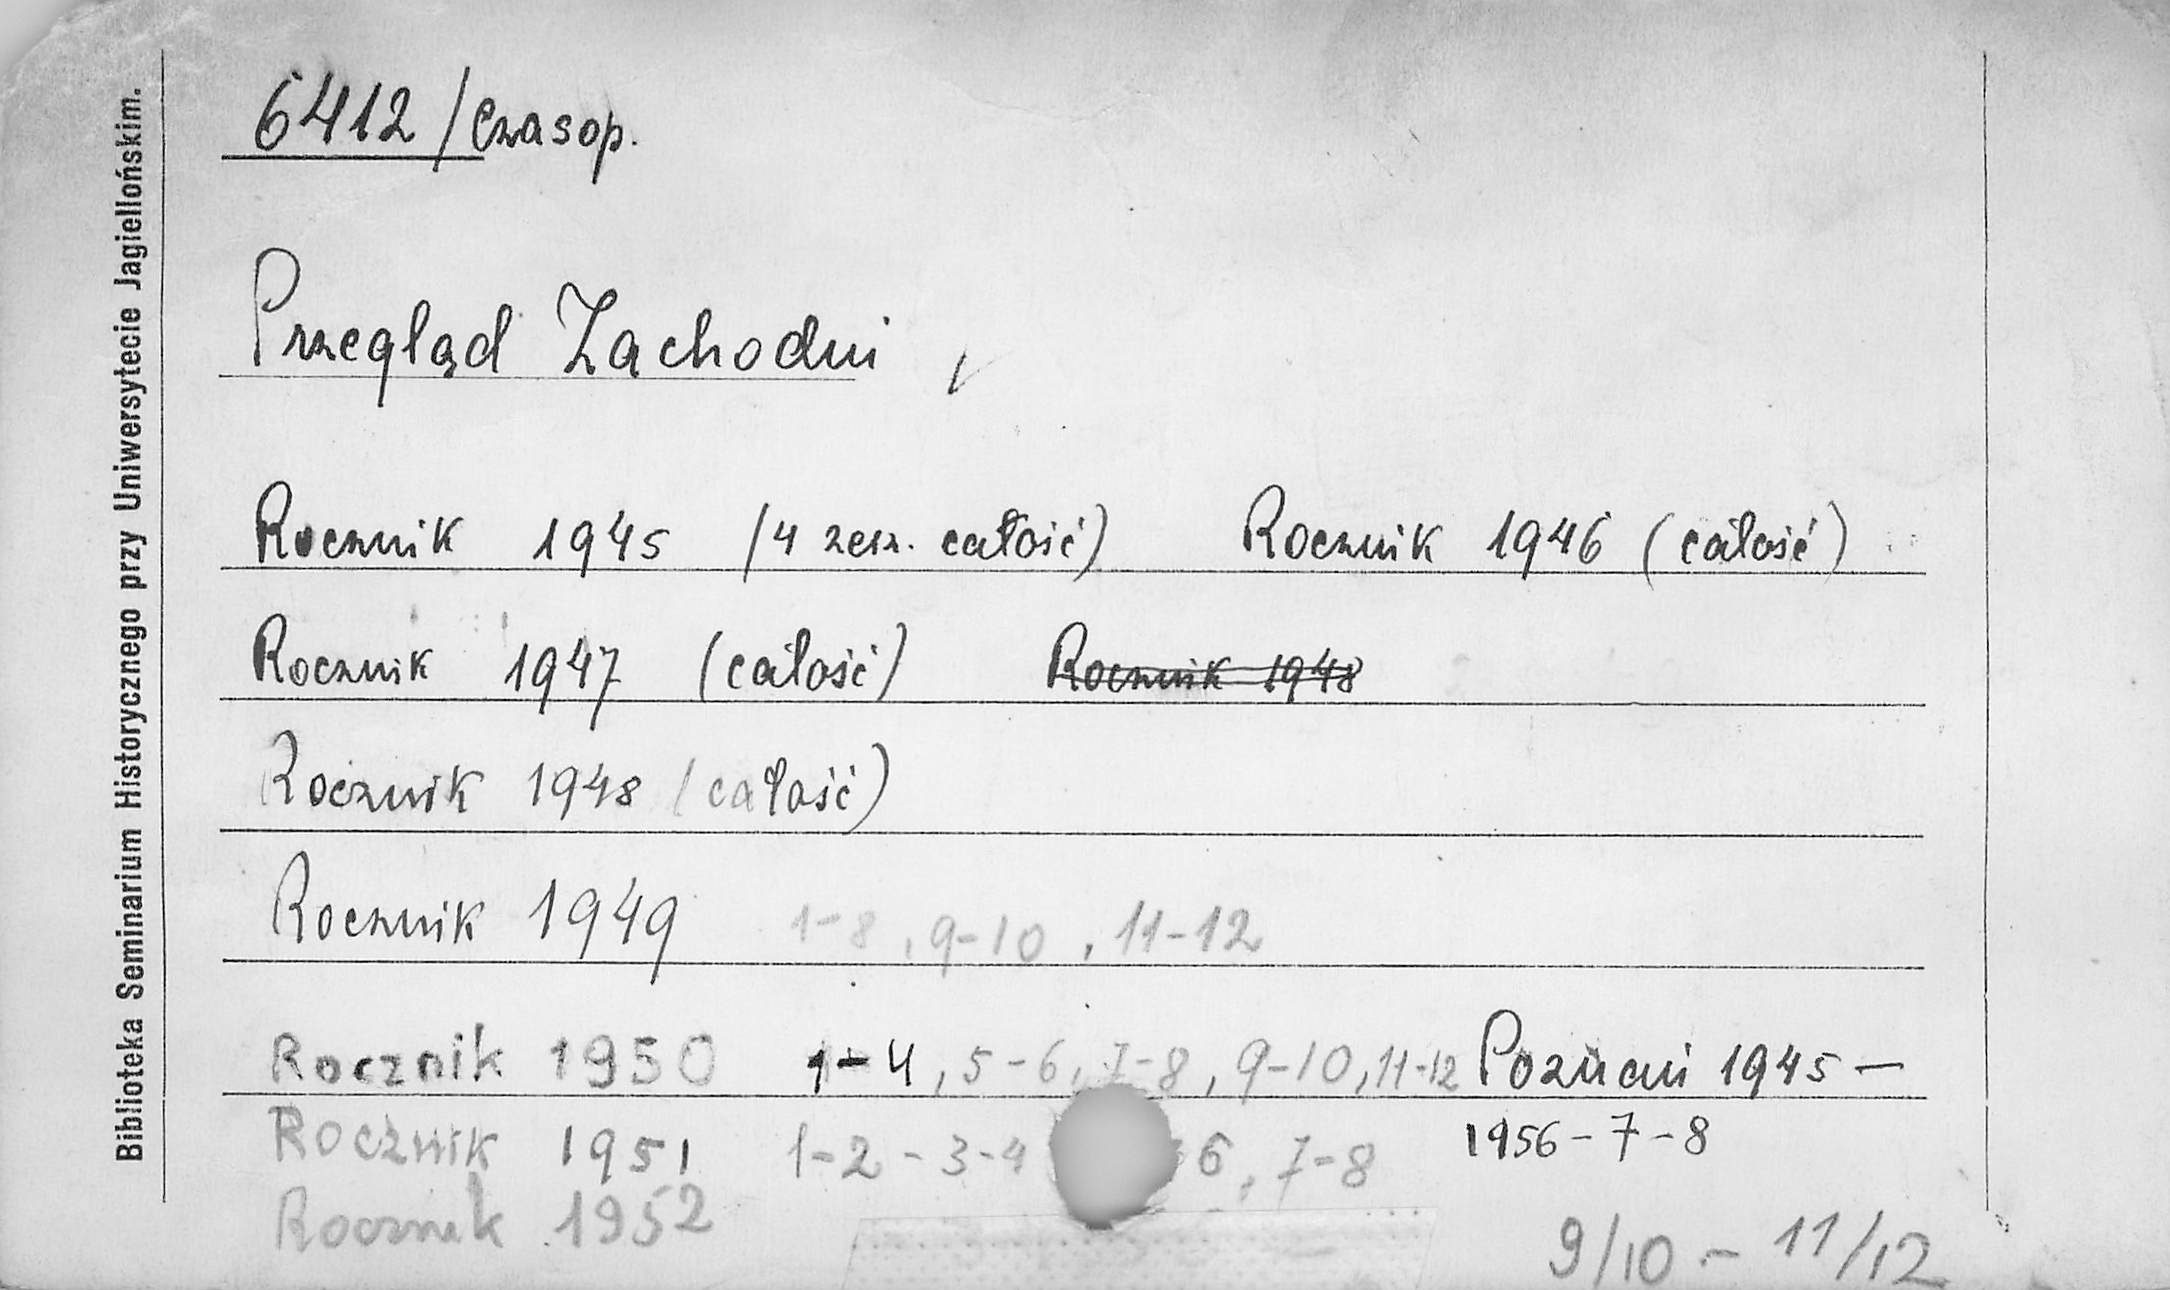 Biblioteka Seminarium Historycznego przy Uniwersytecie Jagiellońskim.
6412/Czasop.
Przegląd Zachodni
Rocznik 1945 /4 zesz. całość) Rocznik 1946 (całość)
Rocznik 1947 (całość) Rocznik 1948
Rocznik 1948 (całość)
Rocznik 1949 1-8, 9-10, 11-12
Rocznik 1950 1-4, 5-6, 7-8, 9-10, 11-12 Poznań 1945 –
Rocznik 1951 1-2 - 3-4 6, 7-8 1956 - 7 - 8
Rocznik 1952 9/10 - 11/12